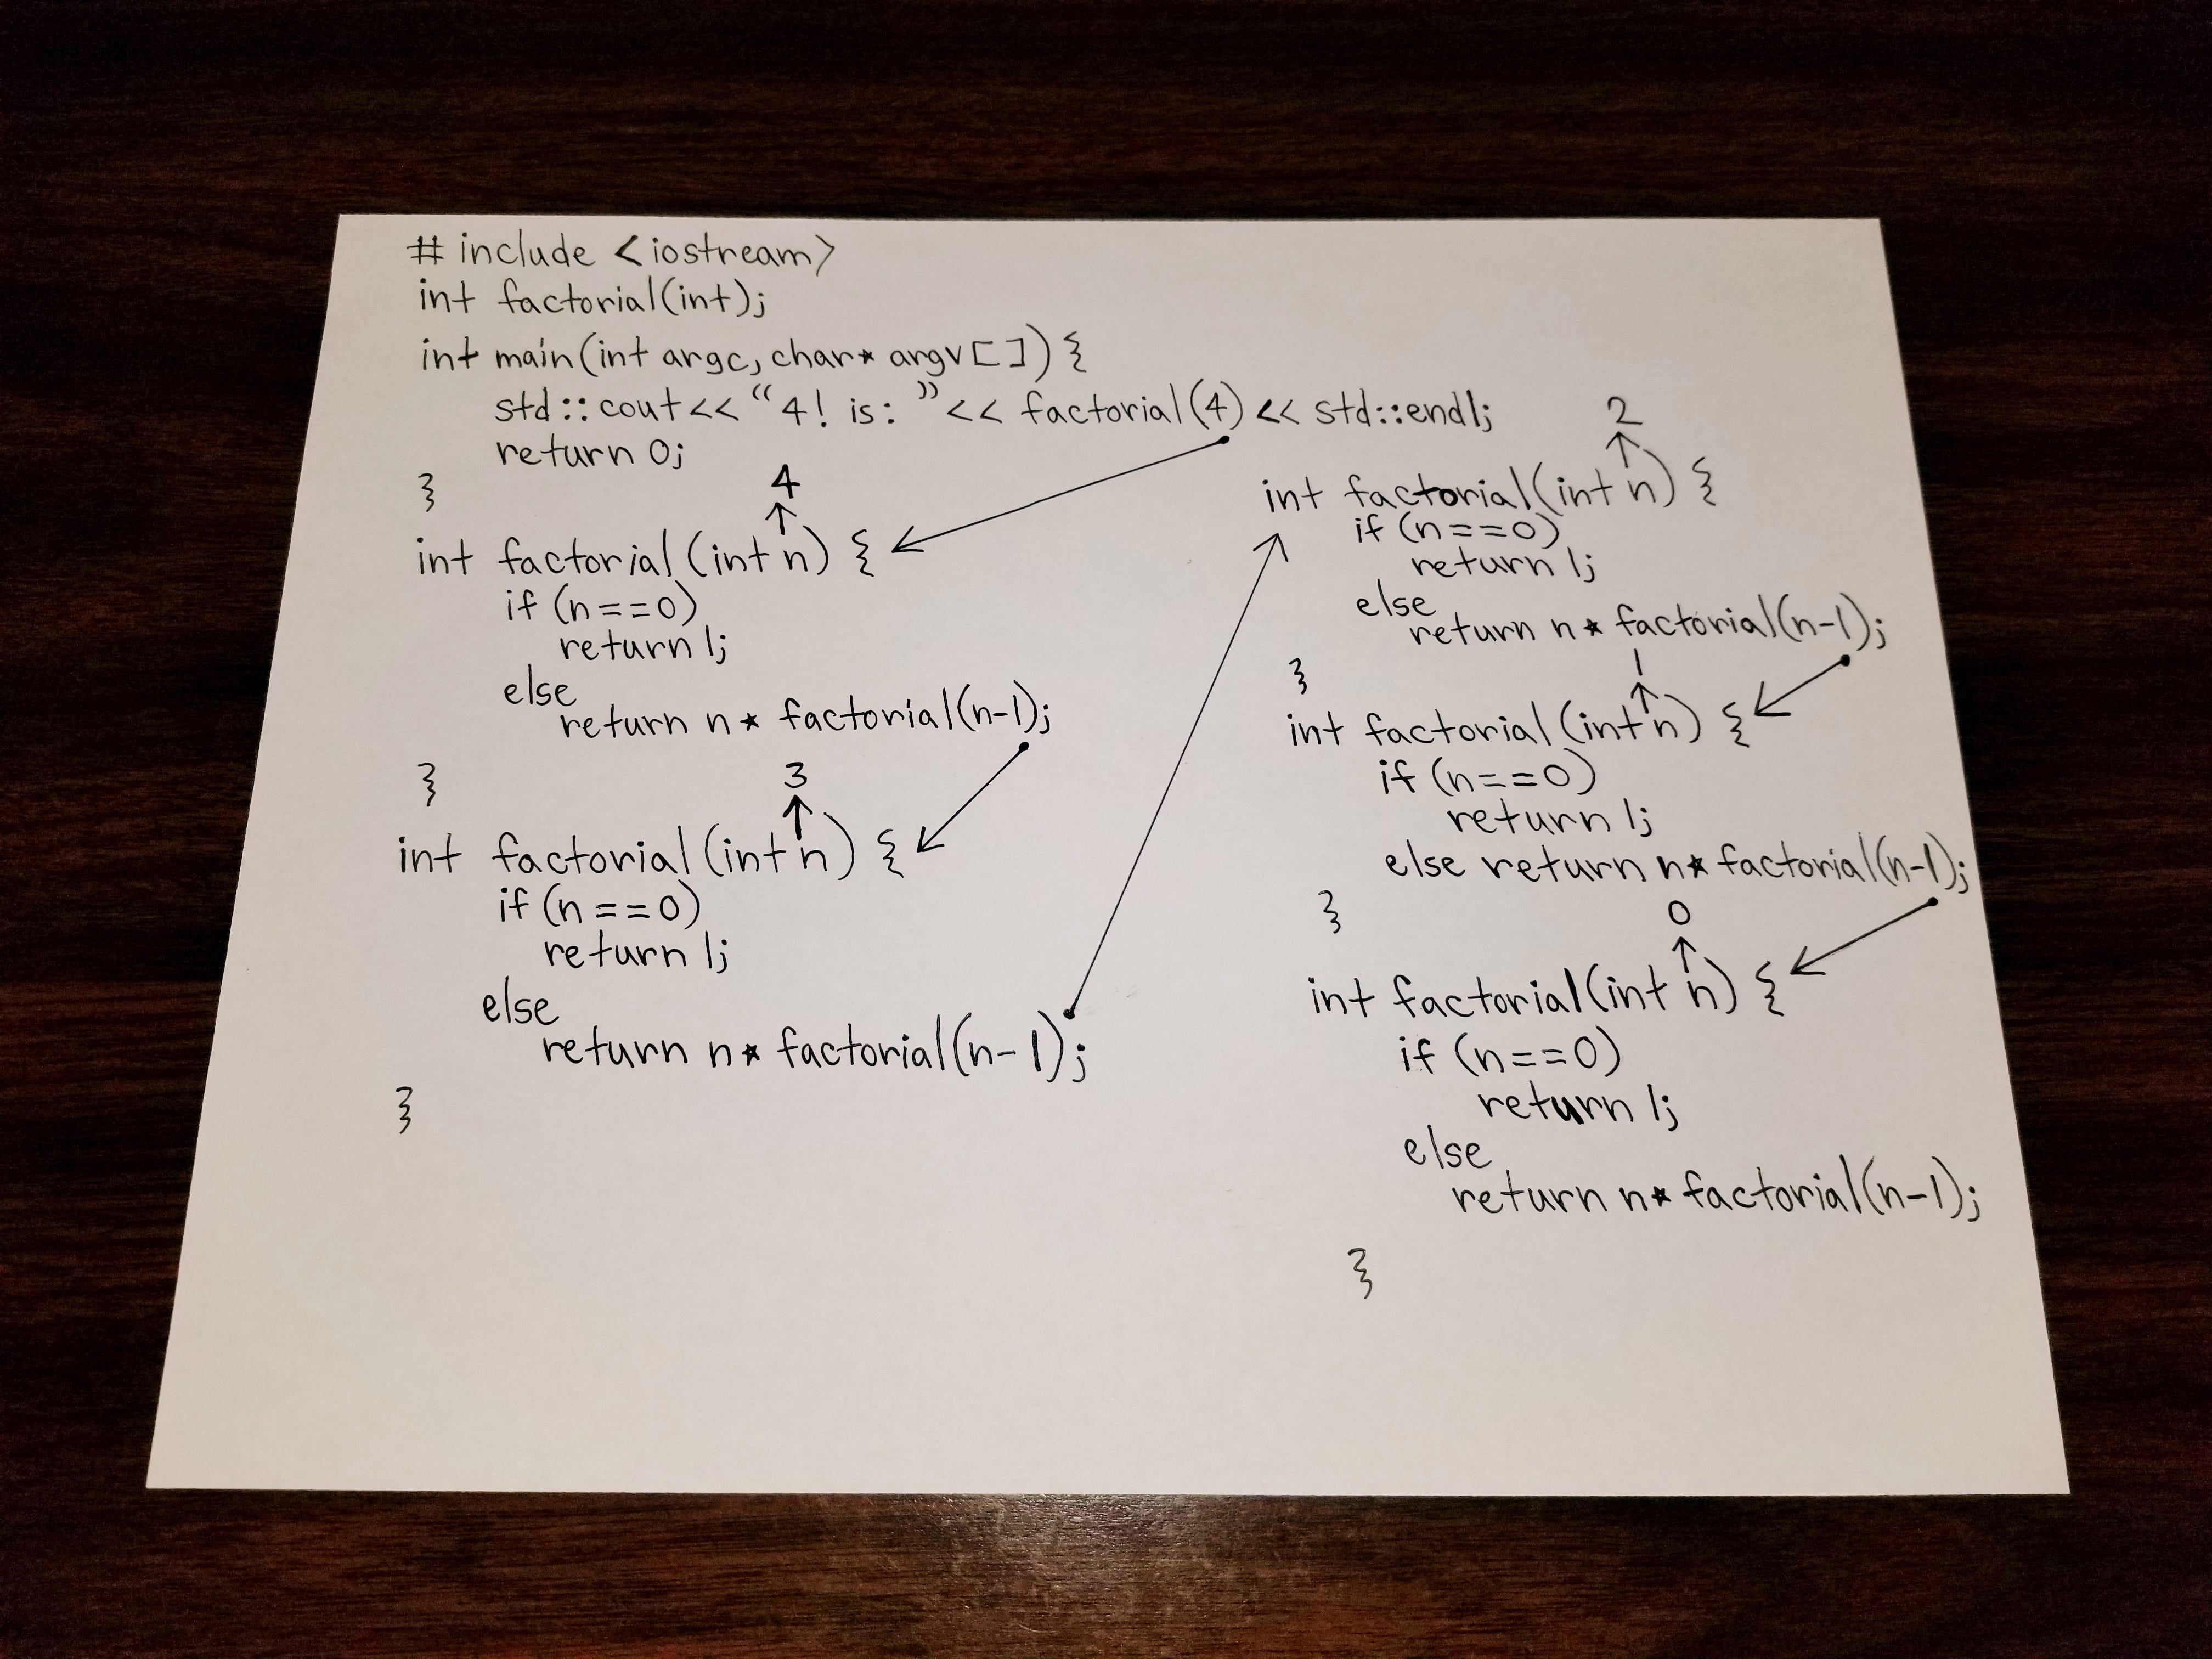 # include <iostream>
int factorial(int);
int main(int argc, char* argv[]) {
std::cout<< "4! is: "<< factorial(4) << std::endl;
return 0;
}
4
int factorial (int n) {
if (n==0)
return 1;
else
return n * factorial(n-1);
}
3
int factorial (int n) {
if (n==0)
return 1;
else
return n* factorial(n-1);
}
2
int factorial(int n) {
if (n==0)
return 1;
else
return n* factorial(n-1);
}
1
int factorial (int n) {
if (n==0)
return 1;
else return n* factorial(n-1);
}
0
int factorial(int n) {
if (n==0)
return 1;
else
return n* factorial(n-1);
}